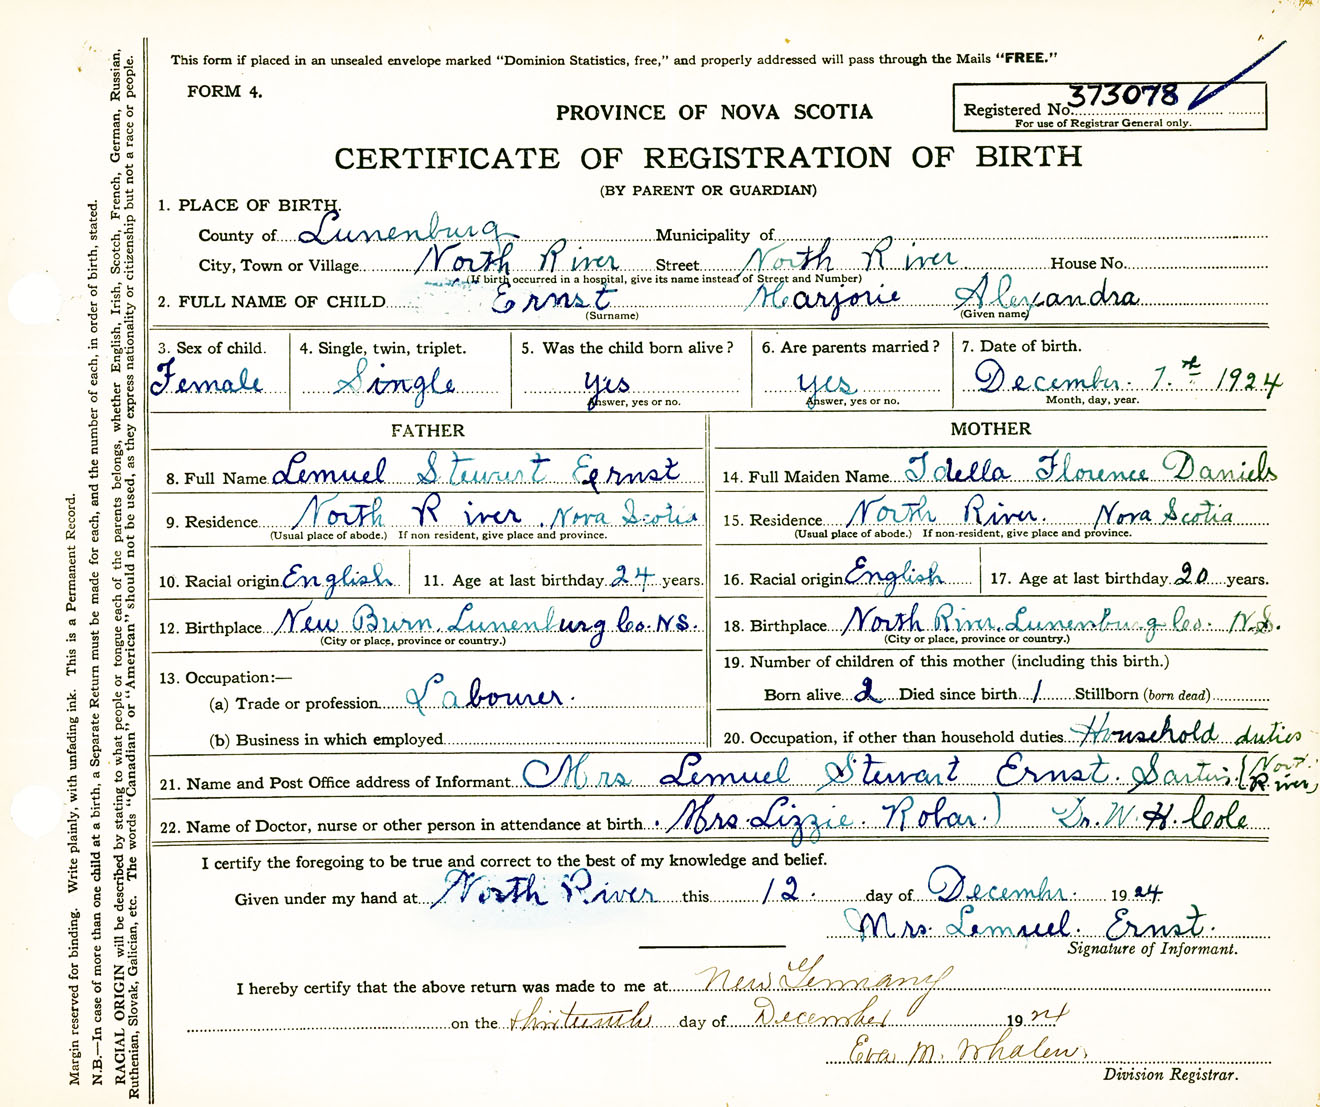 This form if placed in an unsealed envelope marked "Dominion Statistics, free," and properly addressed will pass through the Mails "FREE."
FORM 4.
PROVINCE OF NOVA SCOTIA
Registered No. 373078
For use of Registrar General only.
CERTIFICATE OF REGISTRATION OF BIRTH
(BY PARENT OR GUARDIAN)
1. PLACE OF BIRTH.
County of Lunenburg Municipality of
City, Town or Village North River Street North River House No.
(If birth occurred in a hospital, give its name instead of Street and Number)
2. FULL NAME OF CHILD Ernst Marjorie Alexandra
(Surname) (Given name)
3. Sex of child. 4. Single, twin, triplet. 5. Was the child born alive? 6. Are parents married? 7. Date of birth.
Female Single yes yes December 7th 1924
Answer, yes or no. Answer, yes or no. Month, day, year.
FATHER MOTHER
8. Full Name Lemuel Stewart Ernst 14. Full Maiden Name Idella Florence Daniels
9. Residence North River, Nova Scotia 15. Residence North River. Nova Scotia
(Usual place of abode.) If non resident, give place and province. (Usual place of abode.) If non-resident, give place and province.
10. Racial origin English 11. Age at last birthday 24 years. 16. Racial origin English 17. Age at last birthday 20 years.
12. Birthplace New Burn. Lunenburg Co. N.S. 18. Birthplace North River. Lunenburg Co. N.S.
(City or place, province or country.) (City or place, province or country.)
19. Number of children of this mother (including this birth.)
13. Occupation:—
(a) Trade or profession Labourer. Born alive 2 Died since birth 1 Stillborn (born dead)
(b) Business in which employed 20. Occupation, if other than household duties Household duties
21. Name and Post Office address of Informant Mrs Lemuel Stewart Ernst. (North River)
22. Name of Doctor, nurse or other person in attendance at birth. Mrs. Lizzie. Robar.) Dr. W. H. Cole
I certify the foregoing to be true and correct to the best of my knowledge and belief.
Given under my hand at North River this 12. day of December 1924
Mrs. Lemuel. Ernst.
Signature of Informant.
I hereby certify that the above return was made to me at New Germany
on the thirteenth day of December 1924
Eva M. Whalen.
Division Registrar.
Margin reserved for binding. Write plainly, with unfading ink. This is a Permanent Record.
N.B.—In case of more than one child at a birth, a Separate Return must be made for each, and the number of each, in order of birth, stated.
RACIAL ORIGIN will be described by stating to what people or tongue each of the parents belongs, whether English, Irish, Scotch, French, German, Russian,
Ruthenian, Slovak, Galician, etc. The words "Canadian" or "American" should not be used, as they express nationality or citizenship but not a race or people.